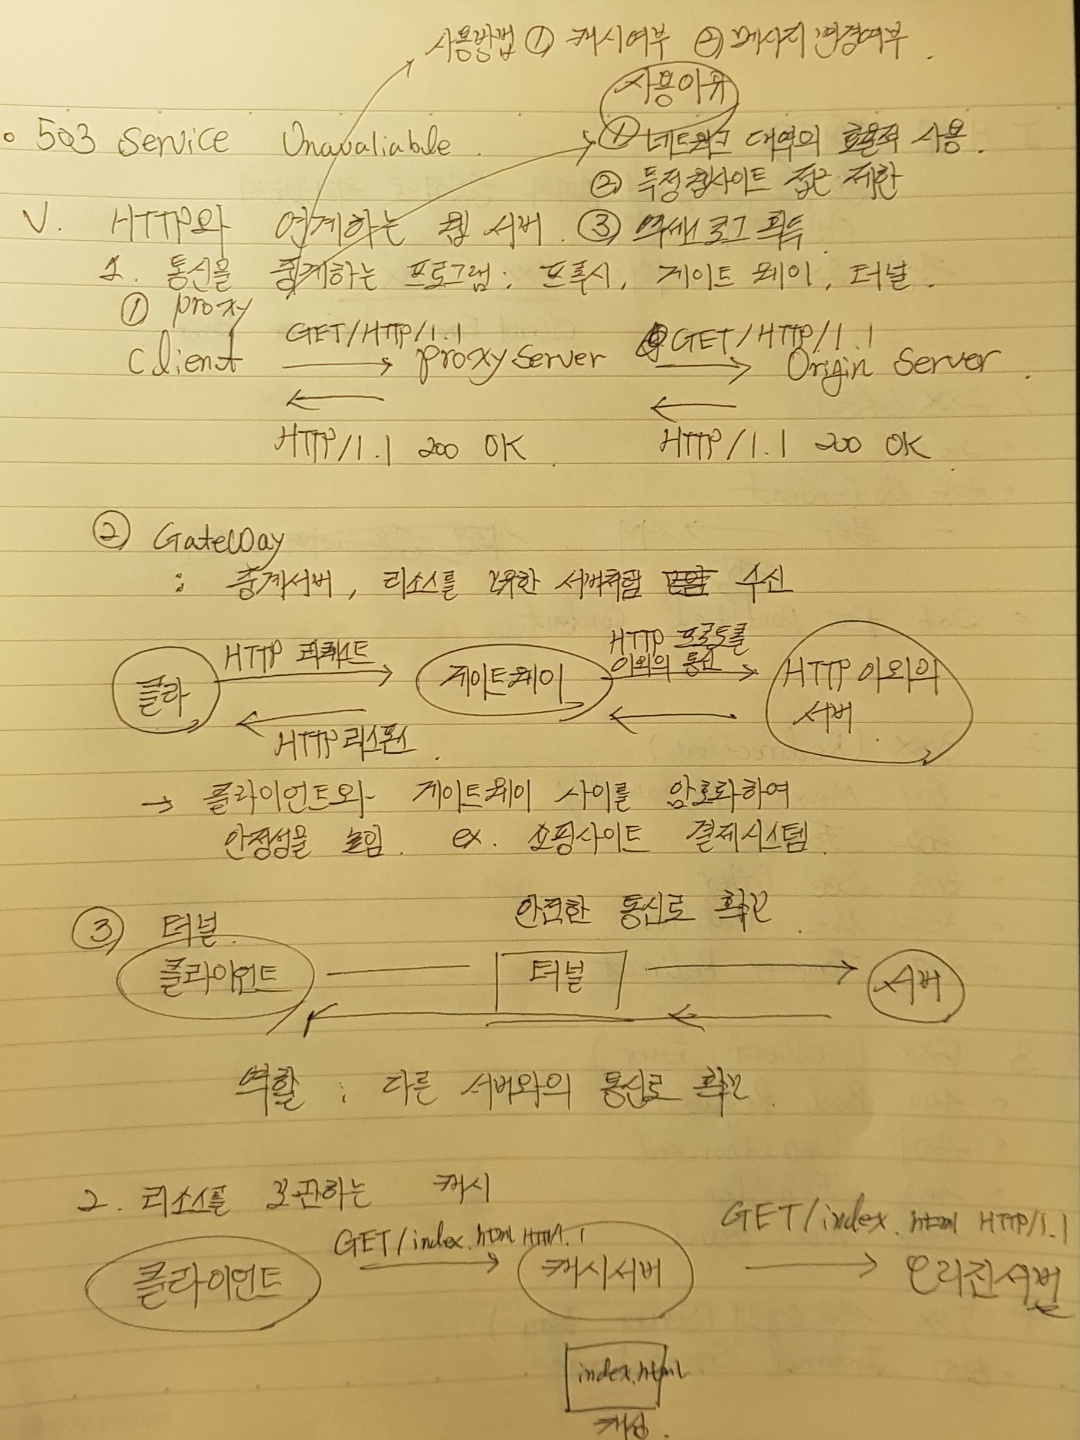 사용방법 ① 캐시여부 ② 메시지 변경여부.
사용이유
• 503 Service Unavaliable.
① 네트워크 대역의 효율적 사용.
② 특정 웹사이트 접근 제한
V. HTTP와 연계하는 웹 서버. ③ 액세스 로그 획득
1. 통신을 중계하는 프로그램: 프록시, 게이트웨이, 터널.
① proxy
GET/HTTP/1.1 GET/HTTP/1.1
Client → proxy Server → Origin Server.
← ←
HTTP/1.1 200 OK HTTP/1.1 200 OK
② GateWay
: 중계서버, 리소스를 보유한 서버처럼 수신
HTTP 리퀘스트 HTTP 프로토콜
이외의 통신
클라 → 게이트웨이 → HTTP 이외의
서버
← ←
HTTP 리스폰스
→ 클라이언트와 게이트웨이 사이를 암호화하여
안정성을 높임. ex. 쇼핑사이트 결제시스템.
③ 터널. 안전한 통신로 확보
클라이언트 터널 → 서버
← ←
역할 : 다른 서버와의 통신로 확보.
2. 리소스를 보관하는 캐시
GET/index.html HTTP/1.1 GET/index.html HTTP/1.1
클라이언트 → 캐시서버 → 오리진서버
index.html
캐싱.